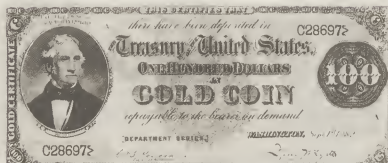 THIS CERTIFIES THAT
there have been deposited in
C28697
Treasury of the United States
ONE HUNDRED DOLLARS
IN
GOLD COIN
repayable to the bearer on demand
100
GOLD CERTIFICATE
DEPARTMENT SERIES
WASHINGTON,
C28697